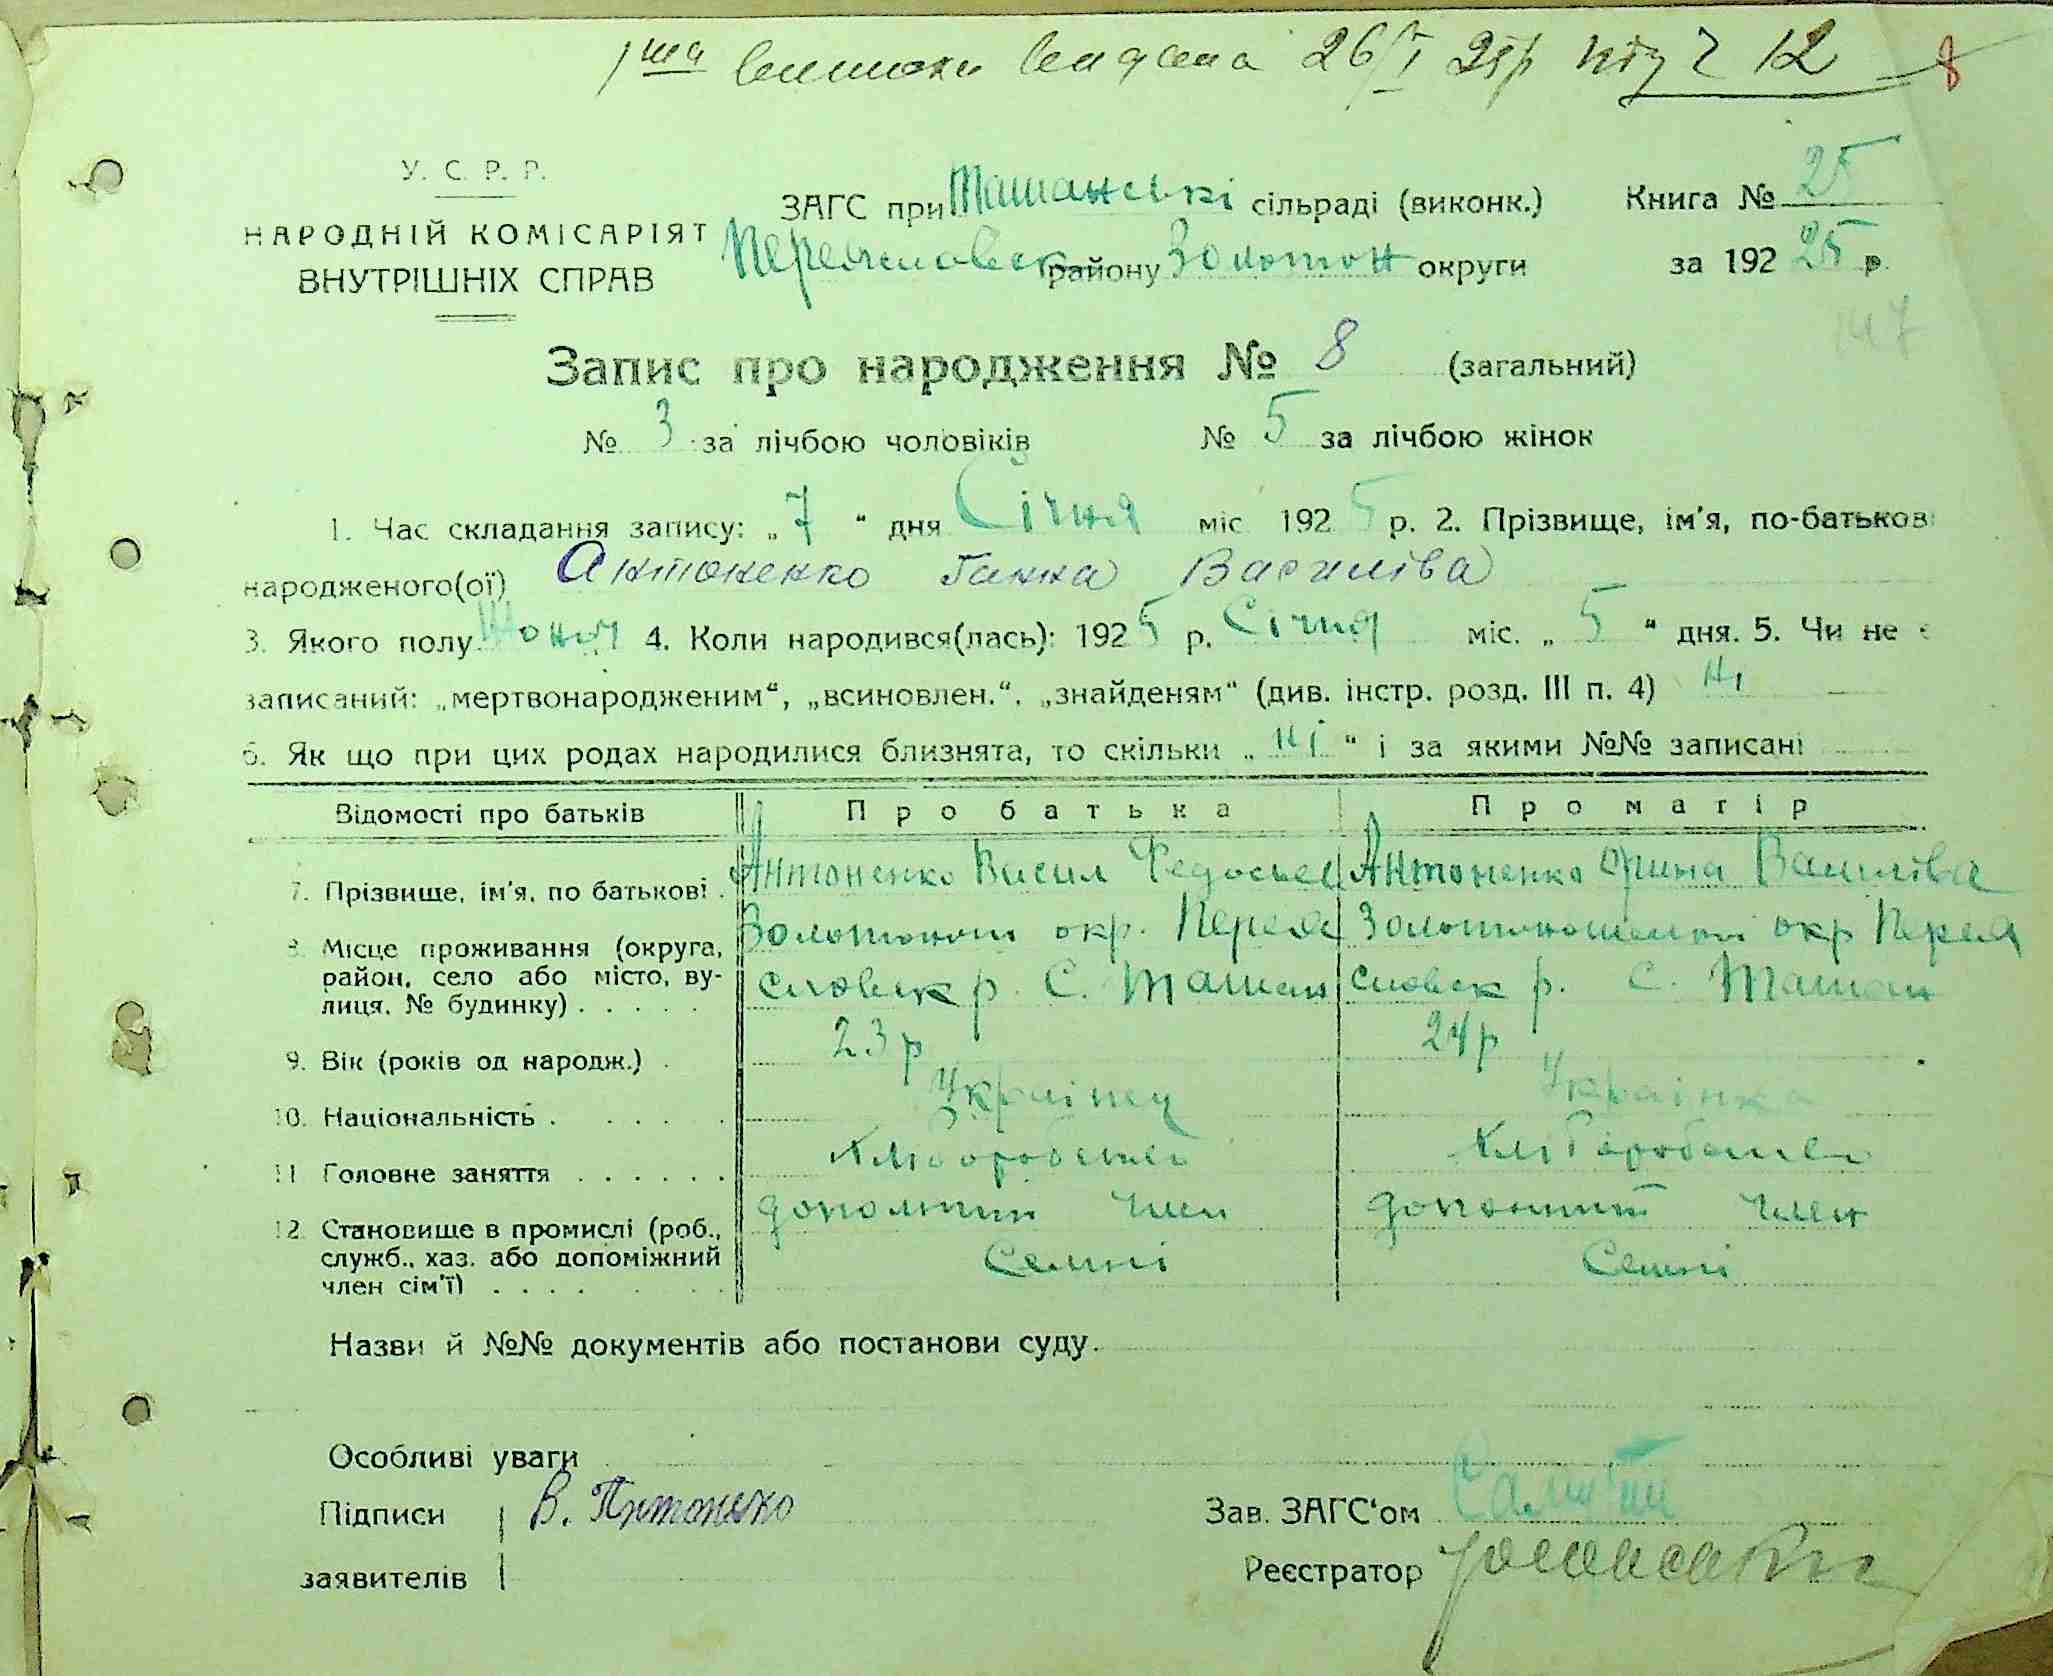 1ша виписка видана 26/I 25р під ч 12
8
У. С. Р. Р.
НАРОДНІЙ КОМІСАРІЯТ
ВНУТРІШНІХ СПРАВ
ЗАГС при Ташанські сільраді (виконк.) Книга № 25
Переяславск району Золотон округи за 192 25 р.
147
Запис про народження № 8 (загальний)
№ 3 за лічбою чоловіків № 5 за лічбою жінок
1. Час складання запису: „ 7 “ дня Січня міс 192 5 р. 2. Прізвище, ім'я, по-батьков
народженого(ої) Антоненко Ганна Василіва
3. Якого полу Жоноч 4. Коли народився(лась): 192 5 р. Січня міс. „ 5 “ дня. 5. Чи не є
записаний: „мертвонародженим“, „всиновлен.“, „знайденям“ (див. інстр. розд. III п. 4) Ні
6. Як що при цих родах народилися близнята, то скільки „ ні “ і за якими №№ записані
Відомості про батьків Про батька Про матір
7. Прізвище, ім'я, по батькові . Антоненко Васил Федосьев Антоненко Орина Василіва
8. Місце проживання (округа, район, село або місто, вулиця, № будинку) . . . . .
Золотонош окр. Перея Золотоношенкой окр Перея
словск р. С. Ташан словск р. С. Ташан
9. Вік (років од народж.) . 23 р 24 р
10. Національність . . . . . Українец Українка
11 Головне заняття . . . . . . Хліборобство Хліборобство
12. Становище в промислі (роб., служб., хаз. або допоміжний член сім'ї) . . . .
член член
Семні Семні
Назви й №№ документів або постанови суду.
Особливі уваги
Підписи В. Антоненко Зав. ЗАГС'ом
заявителів Реєстратор